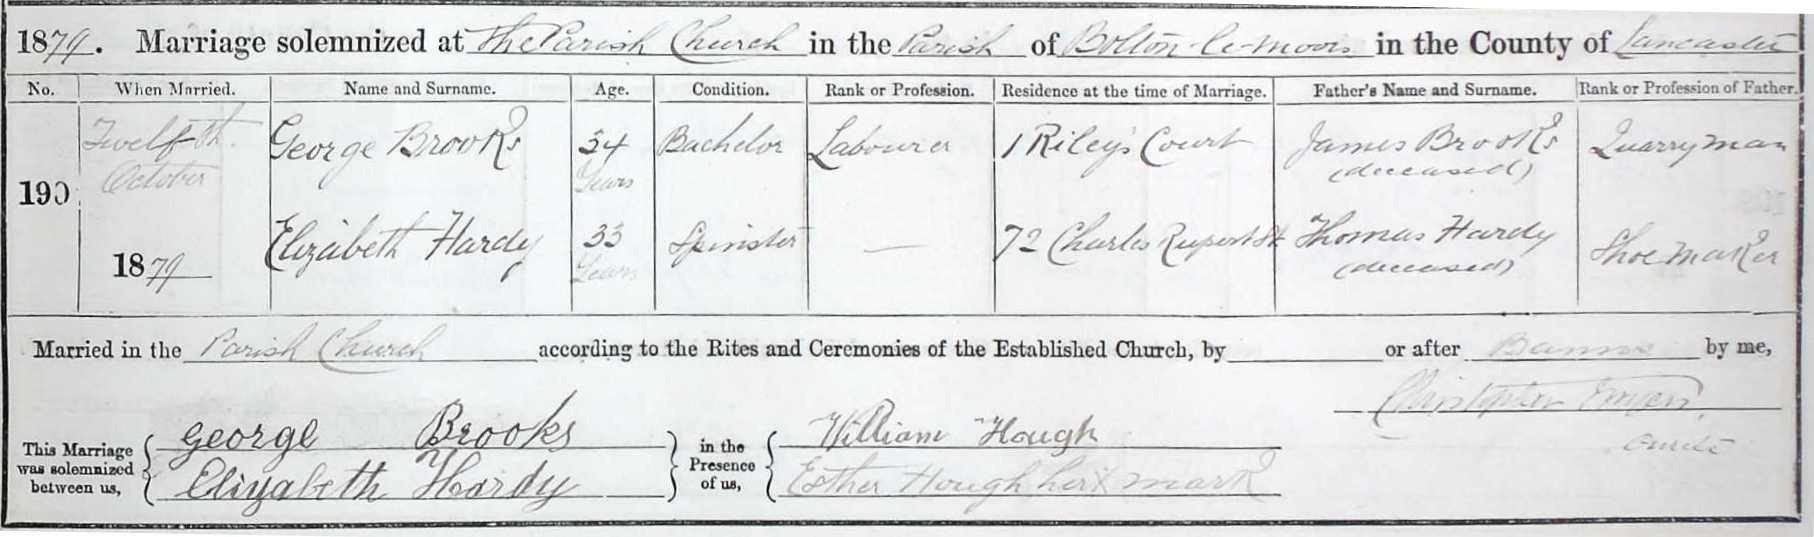 1879. Marriage solemnized at The Parish Church in the Parish of Bolton-le-Moors in the County of Lancaster
No. When Married. Name and Surname. Age. Condition. Rank or Profession. Residence at the time of Marriage. Father's Name and Surname. Rank or Profession of Father.
190 Twelfth October 1879 George Brooks 34 Years Bachelor Labourer 1 Riley's Court James Brooks (deceased) Quarryman
Elizabeth Hardy 33 Years Spinster — 72 Charles Rupert St Thomas Hardy (deceased) Shoe maker
Married in the Parish Church according to the Rites and Ceremonies of the Established Church, by or after Banns by me,
Christopher
Curate
This Marriage was solemnized between us, George Brooks in the Presence of us, William Hough
Elizabeth Hardy Esther Hough her X mark